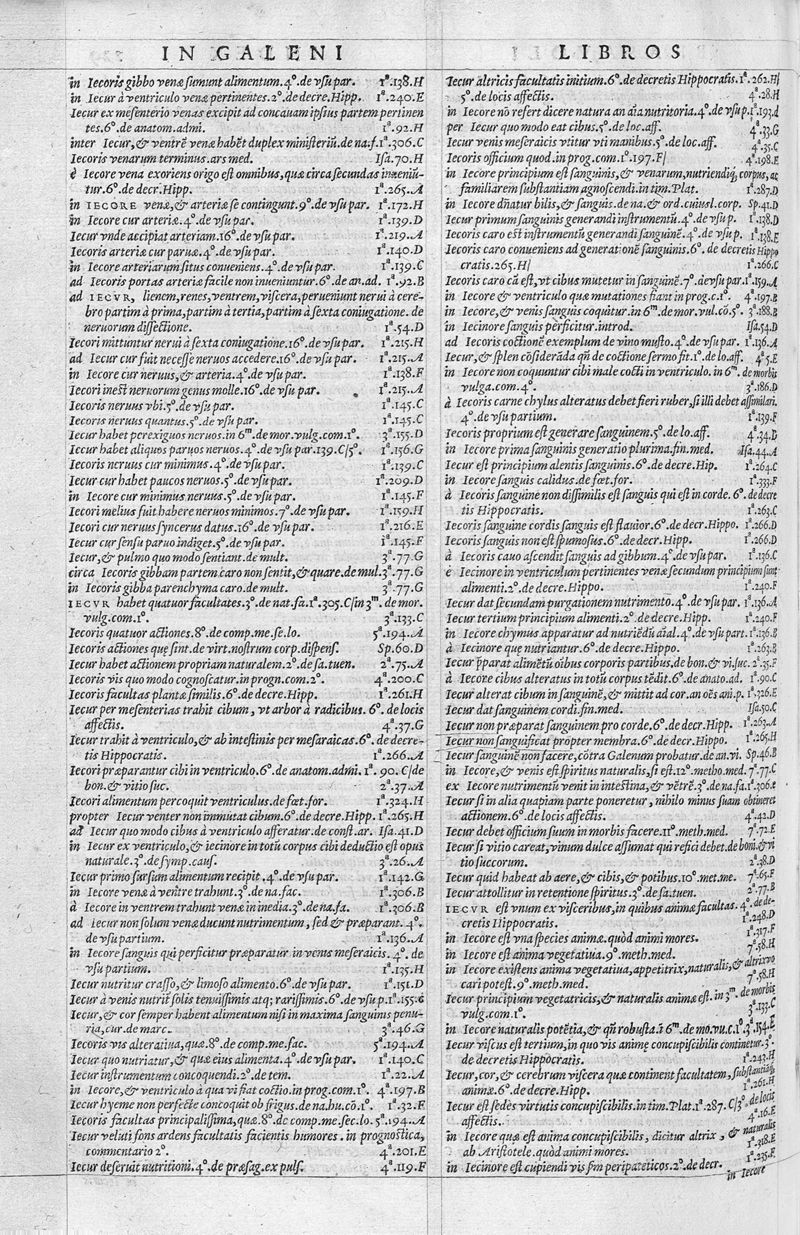 IN GALENI
in Iecoris gibbo venæ sumunt alimentum.4°.de vsu par. 1ª.138.H
in Iecur à ventriculo venæ pertinentes.2°.de decre.Hipp. 1ª.240.E
Iecur ex mesenterio venas excipit ad concauam ipsius partem pertinen
tes.6°.de anatom.admi. 1ª.92.H
inter Iecur,& ventrẽ venæ habẽt duplex ministeriũ.de na.f.1ª.306.C
Iecoris venarum terminus.ars med. Isa.70.H
è Iecore vena exoriens origo est omnibus,quæ circa secundas inueniũ-
tur.6°.de decr.Hipp. 1ª.265.A
in IECORE venæ,& arteriæ se contingunt.9°.de vsu par. 1ª.172.H
in Iecore cur arteriæ.4°.de vsu par. 1ª.139.D
Iecur vnde accipiat arteriam.16°.de vsu par. 1ª.219.A
Iecoris arteriæ cur paruæ.4°.de vsu par. 1ª.140.D
in Iecore arteriarum situs conueniens.4°.de vsu par. 1ª.139.C
ad Iecoris portas arteriæ facile non inueniuntur.6°.de an.ad. 1ª.92.B
ad IECVR, lienem,renes,ventrem,viscera,perueniunt nerui à cere-
bro partim à prima,partim à tertia,partim à sexta coniugatione. de
neruorum dissectione. 1ª.54.D
Iecori mittuntur nerui à sexta coniugatione.16°.de vsu par. 1ª.215.H
ad Iecur cur fuit necesse neruos accedere.16°.de vsu par. 1ª.215.A
in Iecore cur neruus,& arteria.4°.de vsu par. 1ª.138.F
Iecori inest neruorum genus molle.16°.de vsu par. 1ª.215.A
Iecoris neruus vbi.5°.de vsu par. 1ª.145.C
Iecoris neruus quantus.5°.de vsu par. 1ª.145.C
Iecur habet perexiguos neruos.in 6ᵐ.de mor.vulg.com.1°. 3ª.155.D
Iecur habet aliquos paruos neruos.4°.de vsu par.139.C/5°. 1ª.156.G
Iecoris neruus cur minimus.4°.de vsu par. 1ª.139.C
Iecur cur habet paucos neruos.5°.de vsu par. 1ª.209.D
in Iecore cur minimus neruus.5°.de vsu par. 1ª.145.F
Iecori melius fuit habere neruos minimos.7°.de vsu par. 1ª.159.H
Iecori cur neruus syncerus datus.16°.de vsu par. 1ª.216.E
Iecur cur sensu paruo indiget.5°.de vsu par. 1ª.145.F
Iecur,& pulmo quo modo sentiant.de mult. 3ª.77.G
circa Iecoris gibbam partem caro non sentit,& quare.de mul.3ª.77.G
in Iecoris gibba parenchyma caro.de mult. 3ª.77.G
IECVR habet quatuor facultates.3°.de nat.fa.1ª.305.C/in 3ᵐ.de mor.
vulg.com.1°. 3ª.133.C
Iecoris quatuor actiones.8°.de comp.me.se.lo. 5ª.194.A
Iecoris actiones quæ sint.de virt.nostrum corp.dispens. Sp.60.D
Iecur habet actionem propriam naturalem.2°.de sa.tuen. 2ª.75.A
Iecoris vis quo modo cognoscatur.in progn.com.2°. 4ª.200.C
Iecoris facultas plantæ similis.6°.de decre.Hipp. 1ª.261.H
Iecur per mesenterias trahit cibum, vt arbor à radicibus. 6°. de locis
affectis. 4ª.37.G
Iecur trahit à ventriculo,& ab intestinis per mesaraicas.6°.de decre-
tis Hippocratis. 1ª.266.A
Iecori præparantur cibi in ventriculo.6°.de anatom.admi. 1ª. 90.C/de
bon.& vitio suc. 2ª.37.A
Iecori alimentum percoquit ventriculus.de fœt.for. 1ª.324.H
propter Iecur venter non immutat cibum.6°.de decre.Hipp.1ª.265.H
ad Iecur quo modo cibus à ventriculo afferatur.de const.ar. Isa.41.D
in Iecur ex ventriculo,& iecinore in totũ corpus cibi deductio est opus
naturale.3°.de symp.caus. 3ª.26.A
Iecur primo sursum alimentum recipit .4°.de vsu par. 1ª.142.G
in Iecore venæ à ventre trahunt.3°.de na.fac. 1ª.306.B
à Iecore in ventrem trahunt venæ in inedia.3°.de na.fa. 1ª.306.B
ad Iecur non solum venæ ducunt nutrimentum, sed & præparant. 4°.
de vsu partium. 1ª.136.A
in Iecore sanguis qui perficitur præparatur in venis mesaraicis. 4°. de
vsu partium. 1ª.135.H
Iecur nutritur crasso,& limoso alimento.6°.de vsu par. 1ª.151.D
Iecur à venis nutrit solis tenuissimis atq; rarissimis.6°.de vsu p.1ª.155.c
Iecur,& cor semper habent alimentum nisi in maxima sanguinis penu-
ria,cur.de marc. 3ª.46.G
Iecoris vis alteratiua,quæ.8°.de comp.me.fac. 5ª.194.A
Iecur quo nutriatur,& quæ eius alimenta.4°.de vsu par. 1ª.140.C
Iecur instrumentum concoquendi.2°.de tem. 1ª.22.A
in Iecore,& ventriculo à qua vi fiat coctio.in prog.com.1°. 4ª.197.B
Iecur hyeme non perfecte concoquit ob frigus.de na.hu.cõ.1°. 1ª.32.F
Iecoris facultas principalissima,quæ.8°.de comp.me.sec.lo. 5ª.194.A
Iecur veluti fons ardens facultatis facientis humores. in prognostica,
commentario 2°. 4ª.201.E
Iecur deseruit nutritioni.4°.de præsag.ex puls. 4ª.119.F
LIBROS
Iecur altricis facultatis initium.6°.de decretis Hippocratis.1ª.262.H/
5°.de locis affectis. 4ª.28.H
in Iecore nõ refert dicere natura an aĩa nutritoria.4°.de vsu p.1ª.193.A
per Iecur quo modo eat cibus.5°.de loc.aff. 4ª.33.G
Iecur venis meseraicis vtitur vti manibus.5°.de loc.aff. 4ª.35.C
Iecoris officium quod.in prog.com.1°.197.F/ 4ª.198.E
in Iecore principium est sanguinis,& venarum,nutriendiq; corpus,ac
familiarem substantiam agnoscendi.in tim.Plat. 1ª.287.D
in Iecore dñatur bilis,& sanguis.de na.& ord.cuiusl.corp. Sp.41.D
Iecur primum sanguinis generandi instrumentũ.4°.de vsu p. 1ª.138.D
Iecoris caro est instrumentũ generandi sanguinẽ.4°.de vsu p. 1ª.138.E
Iecoris caro conueniens ad generationẽ sanguinis.6°. de decretis Hippo
cratis.265.H/ 1ª.266.C
Iecoris caro cã est,vt cibus mutetur in sanguinẽ.7°.de vsu par.1ª.159.A
in Iecore & ventriculo quæ mutationes fiant in prog.c.1°. 4ª.197.B
in Iecore,& venis sanguis coquitur.in 6ᵐ.de mor.vul.cõ.5°. 3ª.188.B
in Iecinore sanguis perficitur.introd. Isa.54.D
ad Iecoris coctionẽ exemplum de vino musto.4°.de vsu par. 1ª.136.A
Iecur,& splen cõsiderãda qñ de coctione sermo fit.1°.de lo.aff. 4ª.5.E
in Iecore non coquuntur cibi male cocti in ventriculo. in 6ᵐ. de morbis
vulga.com.4°. 3ª.186.D
à Iecoris carne chylus alteratus debet fieri ruber,si illi debet assimilari.
4°.de vsu partium. 1ª.139.F
Iecoris proprium est generare sanguinem.5°.de lo.aff. 4ª.34.D
in Iecore prima sanguinis generatio plurima.fin.med. Isa.44.A
Iecur est principium alentis sanguinis.6°.de decre.Hip. 1ª.264.C
in Iecore sanguis calidus.de fœt.for. 1ª.333.F
à Iecoris sanguine non dissimilis est sanguis qui est in corde. 6°. de decre
tis Hippocratis. 1ª.263.C
Iecoris sanguine cordis sanguis est flauior.6°.de decr.Hippo. 1ª.266.D
Iecoris sanguis non est spumosus.6°.de decr.Hipp. 1ª.266.D
à Iecoris cauo ascendit sanguis ad gibbum.4°.de vsu par. 1ª.136.C
è Iecinore in ventriculum pertinentes venæ secundum principium sunt
alimenti.2°.de decre.Hippo. 1ª.240.F
Iecur dat secundam purgationem nutrimento.4°.de vsu par. 1ª.136.A
Iecur tertium principium alimenti.2°.de decre.Hipp. 1ª.240.F
in Iecore chymus apparatur ad nutriẽdũ aĩal.4°.de vsu part.1ª.136.B
à Iecinore que nutriantur.6°.de decre.Hippo. 1ª.263.B
Iecur p̃parat alimẽtũ oĩbus corporis partibus,de bon.& vi.suc. 2ª.35.F
à Iecore cibus alteratus in totũ corpus tẽdit.6°.de anato.ad. 1ª.90.C
Iecur alterat cibum in sanguinẽ,& mittit ad cor.an oẽs ani.p. 1ª.326.E
Iecur dat sanguinem cordi.fin.med. Isa.50.C
Iecur non præparat sanguinem pro corde.6°.de decr.Hipp. 1ª.263.A
Iecur non sanguificat propter membra.6°.de decr.Hippo. 1ª.265.H
Iecur sanguinẽ non facere,cõtra Galenum probatur.de an.vi. Sp.46.B
in Iecore,& venis est spiritus naturalis,si est.12°.metho.med. 7ª.77.C
ex Iecore nutrimentũ venit in intestina,& vẽtrẽ.3°.de na.fa.1ª.306.c
Iecur si in alia quapiam parte poneretur, nihilo minus suam obtineret
actionem.6°.de locis affectis. 4ª.42.D
Iecur debet officium suum in morbis facere.11°.meth.med. 7ª.72.E
Iecur si vitio careat,vinum dulce assumat qui refici debet.de boni.& vi
tio succorum. 2ª.38.D
Iecur quid habeat ab aere,& cibis,& potibus.10°.met.me. 7ª.65.F
Iecur attollitur in retentione spiritus.3°.de sa.tuen. 2ª.77.B
IECVR est vnum ex visceribus,in quibus animæ facultas. 4°. de de-
cretis Hippocratis. 1ª.248.D
in Iecore est vna species animæ.quòd animi mores. 1ª.317.F
in Iecore est anima vegetatiua.9°.meth.med. 7ª.58.H
in Iecore existens anima vegetatiua,appetitrix,naturalis,& altrix vo
cari potest.9°.meth.med. 7ª.58.H
Iecur principium vegetatricis,& naturalis animæ est. in 3ᵐ. de morbis
vulg.com.1°. 3ª.133.C
in Iecore naturalis potẽtia,& qñ robusta.i 6ᵐ.de mo.vu.C.1°.3ª.154.E
Iecur viscus est tertium,in quo vis animę concupiscibilis continetur.3°.
de decretis Hippocratis. 1ª.243.H
Iecur,cor,& cerebrum viscera quæ continent facultatem,substantiaq;
animæ.6°.de decre.Hipp. 1ª.261.H
Iecur est sedes virtutis concupiscibilis.in tim.Plat.1ª.287.C/3°.de locis
affectis. 4ª.16.E
in Iecore quæ est anima concupiscibilis, dicitur altrix , & naturalis
ab Aristotele.quòd animi mores. 1ª.318.E
in Iecinore est cupiendi vis sm̃ peripateticos.2°.de decr. 1ª.235.F
in Iecore